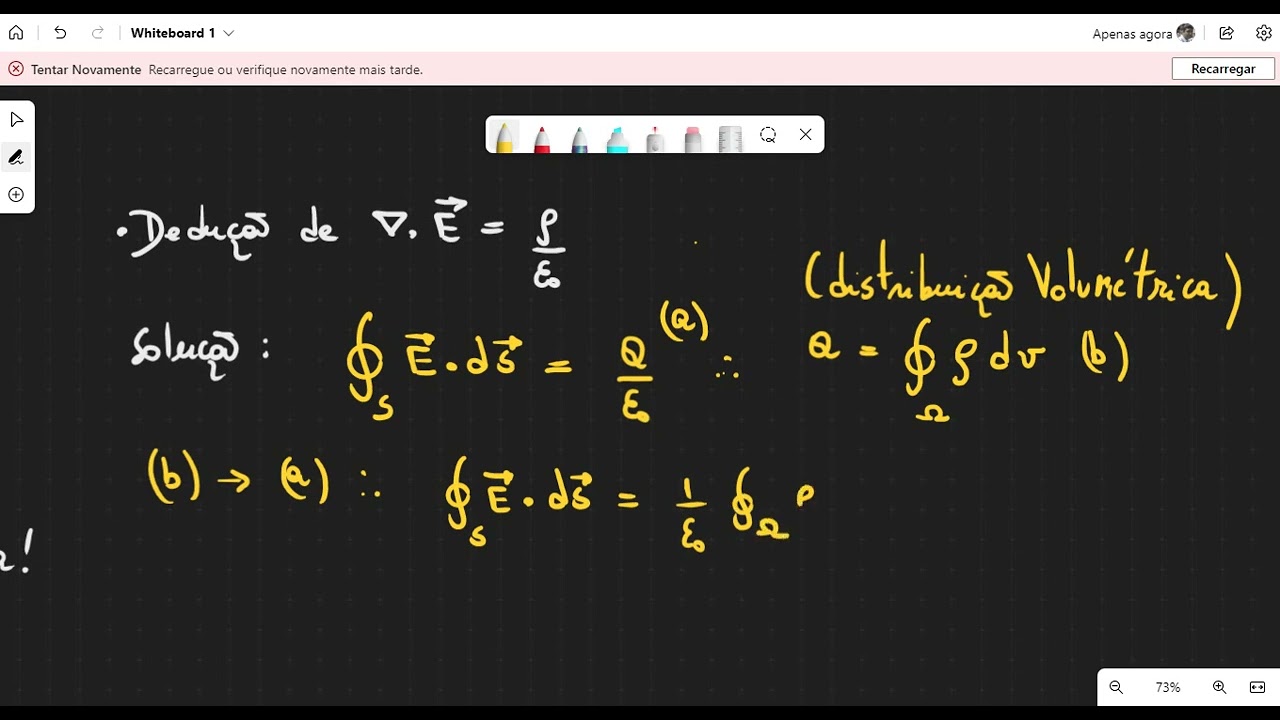 Whiteboard 1
Apenas agora
Tentar Novamente Recarregue ou verifique novamente mais tarde.
Recarregar
• Dedução de ∇. E⃗ = ρ/ε₀
(distribuição Volumétrica)
Solução : ∮_S E⃗ • dS⃗ = Q/ε₀ (a) ∴ Q = ∮_Ω ρ dv (b)
(b) → (a) ∴ ∮_S E⃗ • dS⃗ = 1/ε₀ ∮_Ω ρ
a!
73%